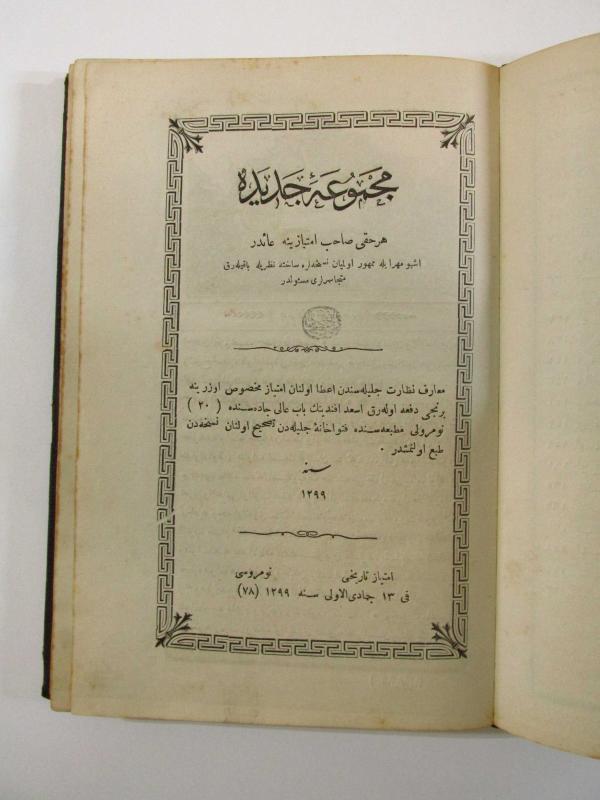 مجموعۀ جدیده
هر حقی صاحب امتیازینه عائددر
اشبو مهر ایله ممهور اولمیان نسخه‌لره ساخته نظریله باقیله‌رق
متجاسرلری مسئولدر
معارف نظارت جلیله سندن اعطا اولنان امتیاز مخصوص اوزرینه
برنجی دفعه اوله‌رق اسعد افندینك باب عالی جاده سنده (٢٠)
نومرولی مطبعه سنده فتواخانۀ جلیله‌دن تصحیح اولنان نسخه‌دن
طبع اولنمشدر ٠
سنه
١٢٩٩
امتیاز تاریخی نومروسی
فی ١٣ جمادی الاولی سنه ١٢٩٩ (٧٨)